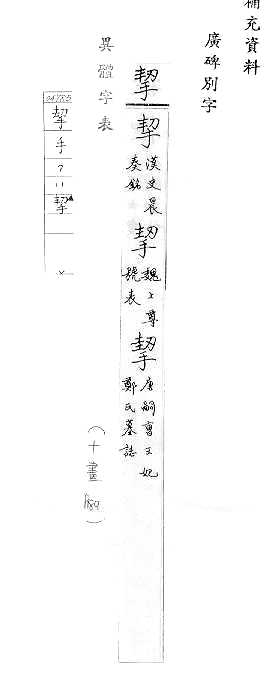 補充資料
廣碑別字
挈
挈
漢史晨
奏銘
挈
魏上尊
號表
挈
唐嗣曹王妃
鄭氏墓誌
異體字表
(十畫)
挈
手
7
11
挈